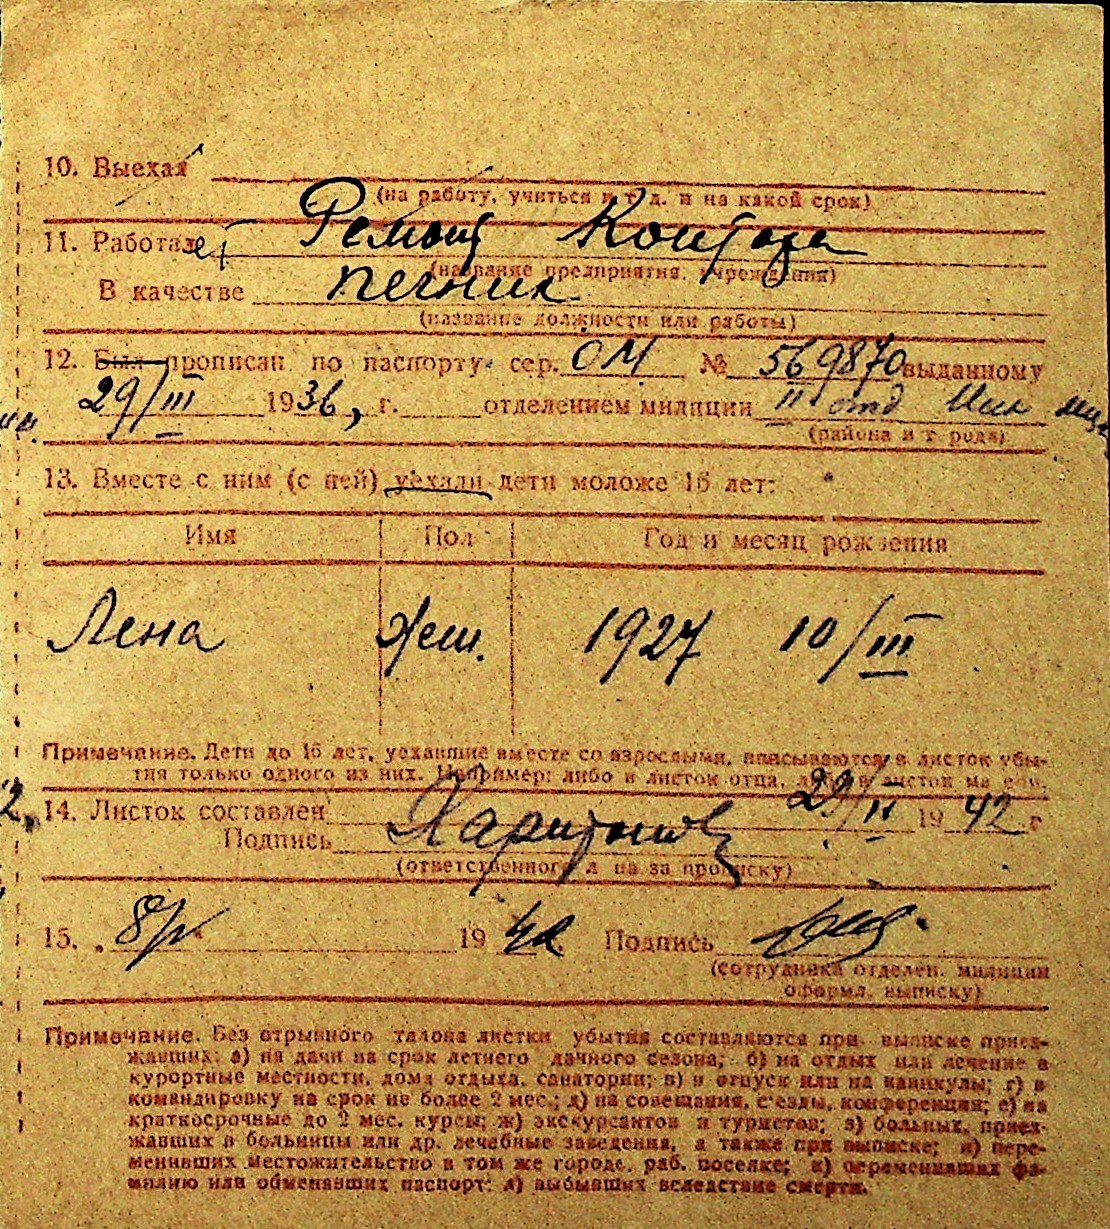 10. Выехал
(на работу, учиться и т. д. и на какой срок)
11. Работает Ремонт Контора
(название предприятия, учреждения)
В качестве печник
(название должности или работы)
12. Был прописан по паспорту сер. ОМ № 569870 выданному
29/III 1936, г. отделением милиции II отд
(района и т рода)
13. Вместе с ним (с ней) уехали дети моложе 16 лет:
Имя Пол Год и месяц рождения
Лена жен. 1927 10/III
Примечание. Дети до 16 лет, уехавшие вместе со взрослыми, вписываются в листок убы-
тия только одного из них. Например: либо в листок отца, либо в листок матери.
29/II 1942 г
14. Листок составлен
Подпись Харитонов
(ответственного л ца за прописку)
15. 19 42. Подпись
(сотрудника отделен. милиции
оформл. выписку)
Примечание. Без отрывного талона листки убытия составляются при выписке приез-
жавших: а) на дачи на срок летнего дачного сезона; б) на отдых или лечение в
курортные местности, дома отдыха, санатории; в) в отпуск или на каникулы; г) в
командировку на срок не более 2 мес.; д) на совещания, с'езды, конференции; е) на
краткосрочные до 2 мес. курсы; ж) экскурсантов и туристов; з) больных, приез-
жавших в больницы или др. лечебные заведения, а также при выписке; и) пере-
менивших местожительство в том же городе, раб. поселке; к) переменивших фа-
милию или обменявших паспорт; л) выбывших вследствие смерти.